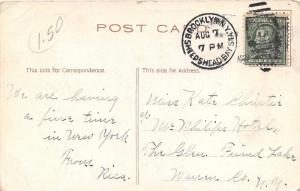 1.50
POST CARD
BROOKLYN, N.Y.
AUG 7
7 PM
SHEEPSHEAD BAY STA.
This side for Correspondence.
This side for Address.
We are having
a fine time
in New York
From
Miss Kate Christie
Mc Philips Hotel,
The Glen. Friend Lake
Warren Co.
N.Y.